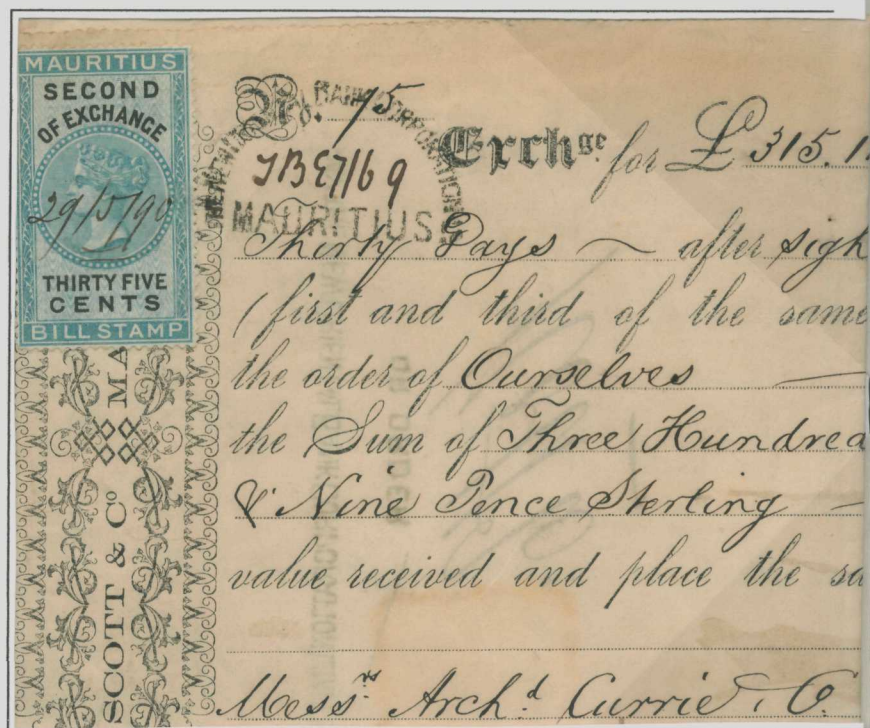 MAURITIUS
SECOND
OF EXCHANGE
29/5/90
THIRTY FIVE
CENTS
BILL STAMP
SCOTT & Cº MA
No. 75
BANK CORPORATION
MAURITIUS
Exchge. for £ 315.1
Thirty Days ~ after sigh
(first and third of the same
the order of Ourselves —
the Sum of Three Hundred
& Nine Pence Sterling —
value received and place the sa
Messrs Archd. Currie & Co.